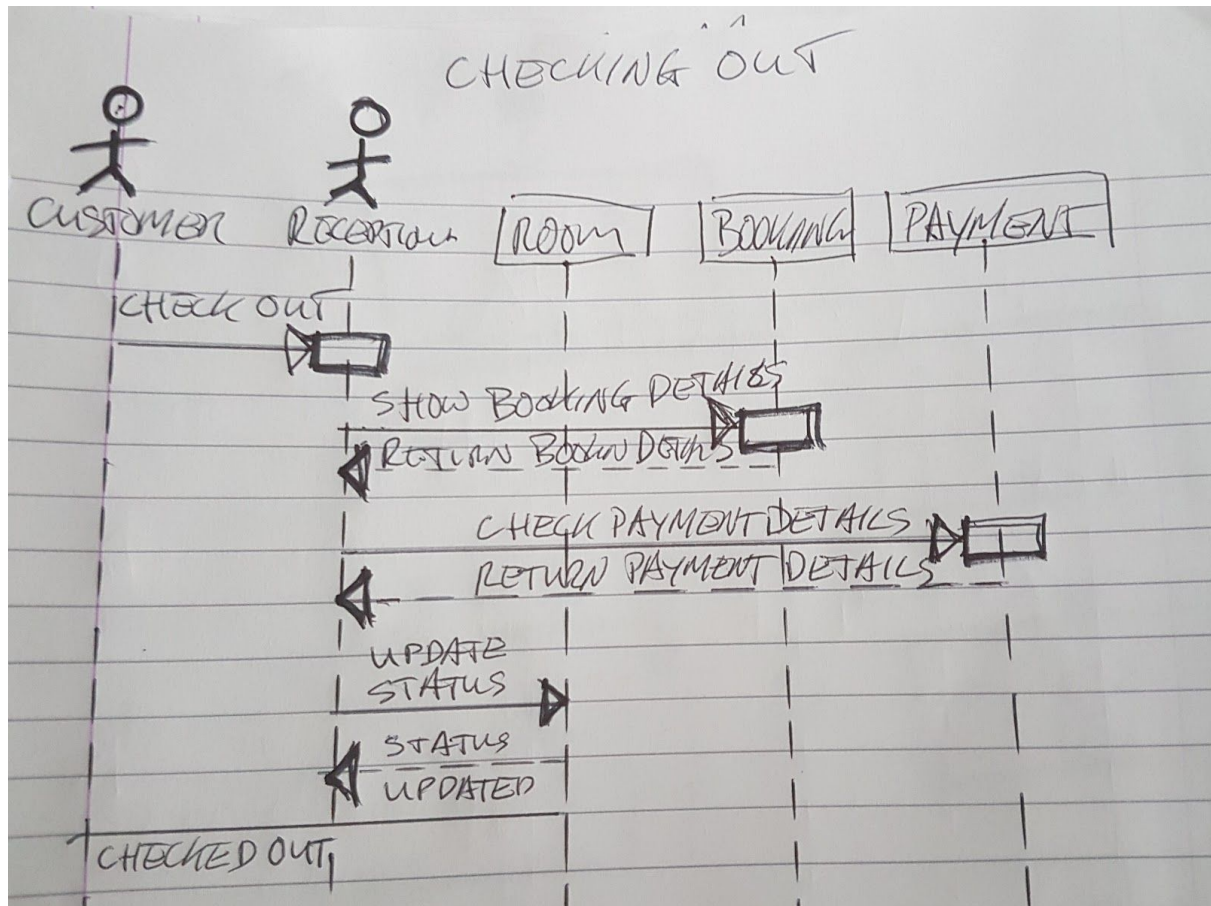 CHECKING OUT
CUSTOMER RECEPTION ROOM BOOKING PAYMENT
CHECK OUT
SHOW BOOKING DETAILS
RETURN BOOKN DETAILS
CHECK PAYMENT DETAILS
RETURN PAYMENT DETAILS
UPDATE
STATUS
STATUS
UPDATED
CHECKED OUT